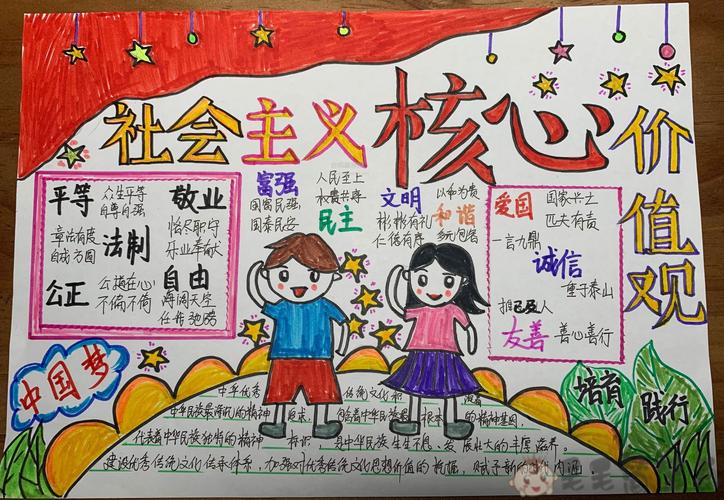 社会主义核心价值观
平等
众生平等
自尊自强
敬业
恪尽职守
乐业奉献
章法有度
自成方圆
法制
公正
公道在心
不偏不倚
自由
海阔天空
任佑驰骋
富强
国富民强
国泰民安
人民至上
权共序
民主
文明
彬彬有礼
仁德有序
以和为贵
和谐
多元包容
爱国
国家兴亡
匹夫有责
一言九鼎
诚信
重于泰山
推己及人
友善
善心善行
中国梦
培育
践行
中华优秀
传统文化
中华民族最深沉的精神追求
着中华民族
根本
的精神基因,
代表着中华民族独特的精神标识,是中华民族生生不息、发展壮大的丰厚滋养。
建设优秀传统文化传承体系,加强对优秀传统文化思想价值的挖掘,赋予新的
内涵